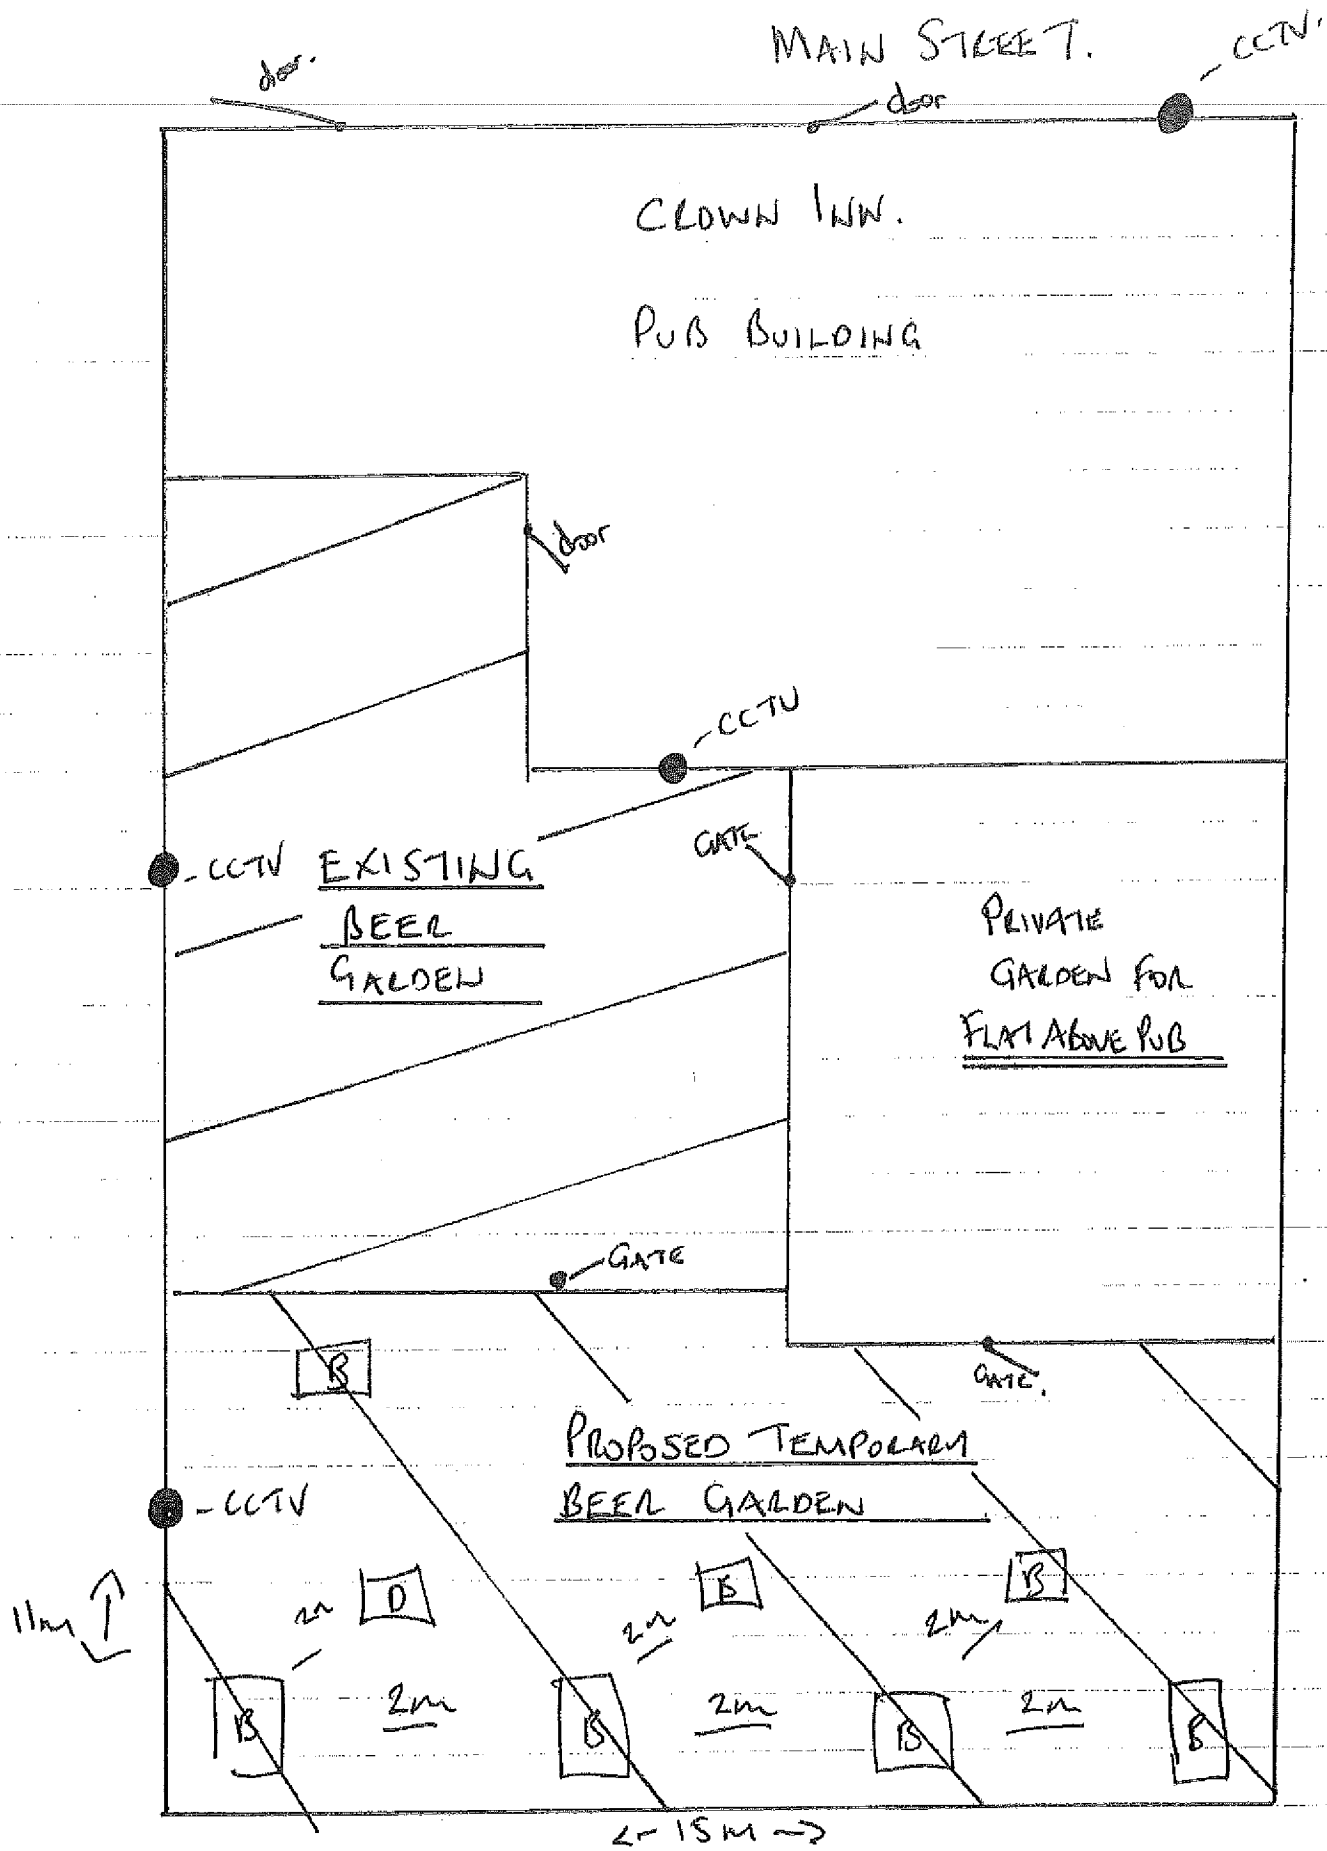 MAIN STREET.
CCTV.
door.
door
CROWN INN.
PUB BUILDING
door
CCTV
GATE
CCTV
EXISTING
BEER
GARDEN
PRIVATE
GARDEN FOR
FLAT ABOVE PUB
GATE
GATE.
B
PROPOSED TEMPORARY
BEER GARDEN
CCTV
11m
2m
D
2m
B
2m
B
B
2m
B
2m
B
2m
B
15M